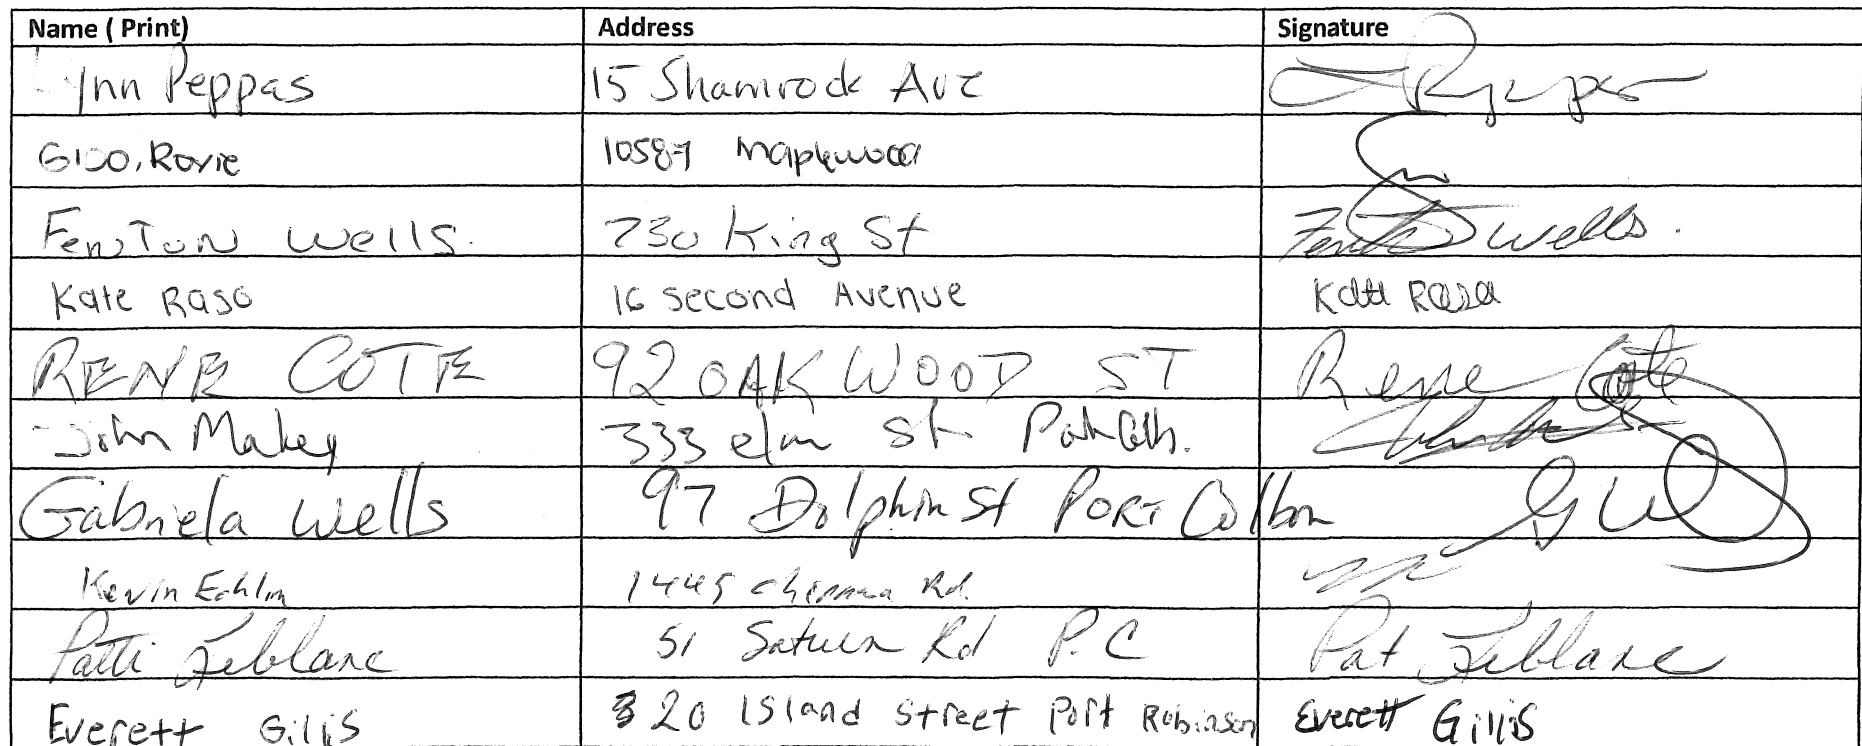 Name ( Print) Address Signature
Lynn Peppas 15 Shamrock Ave
10587 Maplewood
Fenton Wells. 730 King St Fenton Wells.
Kate Raso 16 second Avenue Kate Raso
RENE COTE 92 OAKWOOD ST Rene Cote
John Makey 333 elm St
Gabriela Wells 97 Dolphin St PORT Colborn GW
Kevin Echlin 1445 Rd.
Patti Leblanc 51 Saturn Rd P.C Pat Leblanc
Everett Gillis 320 Island Street Port Robinson Everett Gillis